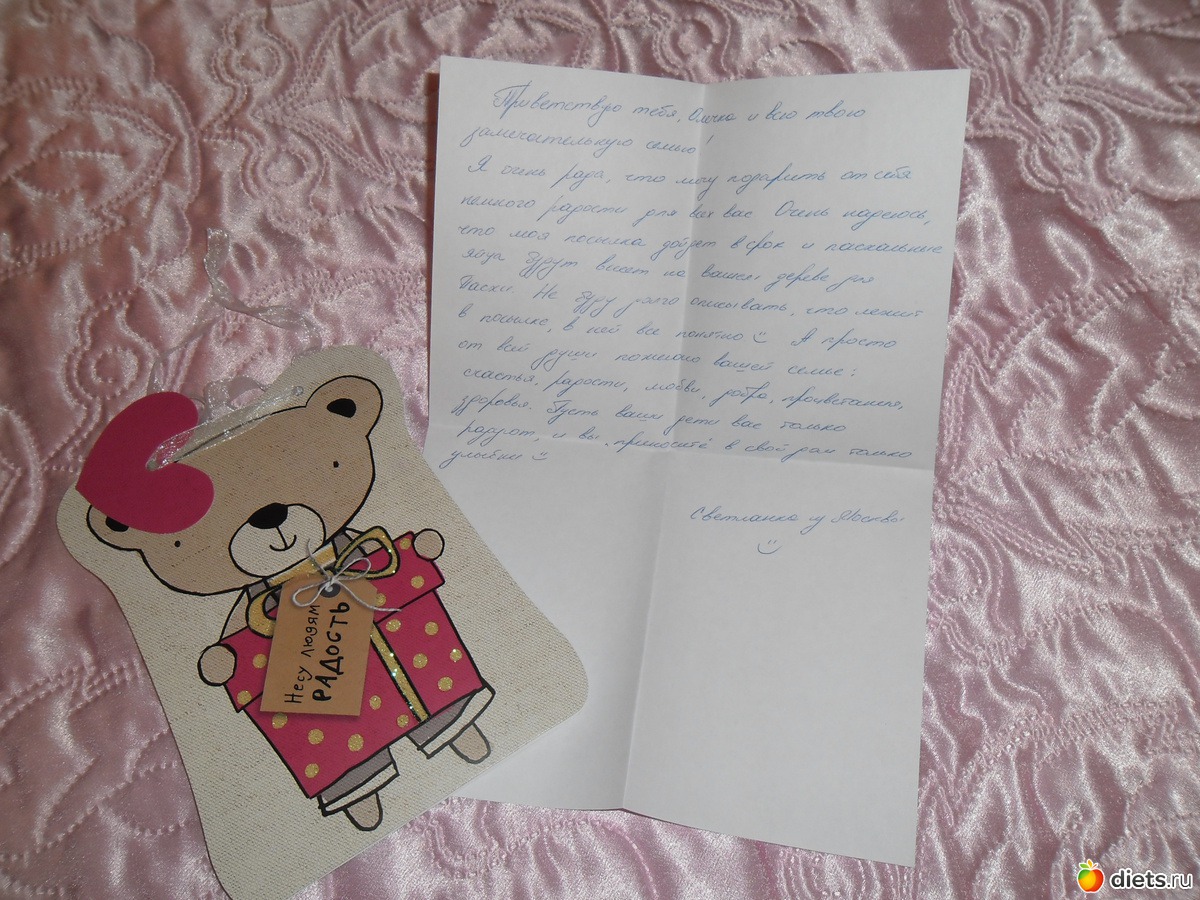 Приветствую тебя, Олечка и всю твою
замечательную семью!
Я очень рада, что могу подарить от себя
немного радости для всех вас. Очень надеюсь,
что моя посылка дойдет в срок и пасхальные
яйца будут висеть на вашем дереве для
Пасхи. Не буду долго описывать, что лежит
в посылке, в ней все понятно☺ А просто
от всей души пожелаю вашей семье:
счастья, радости, любви, добра, процветания,
здоровья. Пусть ваши дети вас только
радуют, и вы "приносите" в свой дом только
улыбки ☺
Светланка из Москвы
☺
Несу людям
РАДОСТЬ
diets.ru